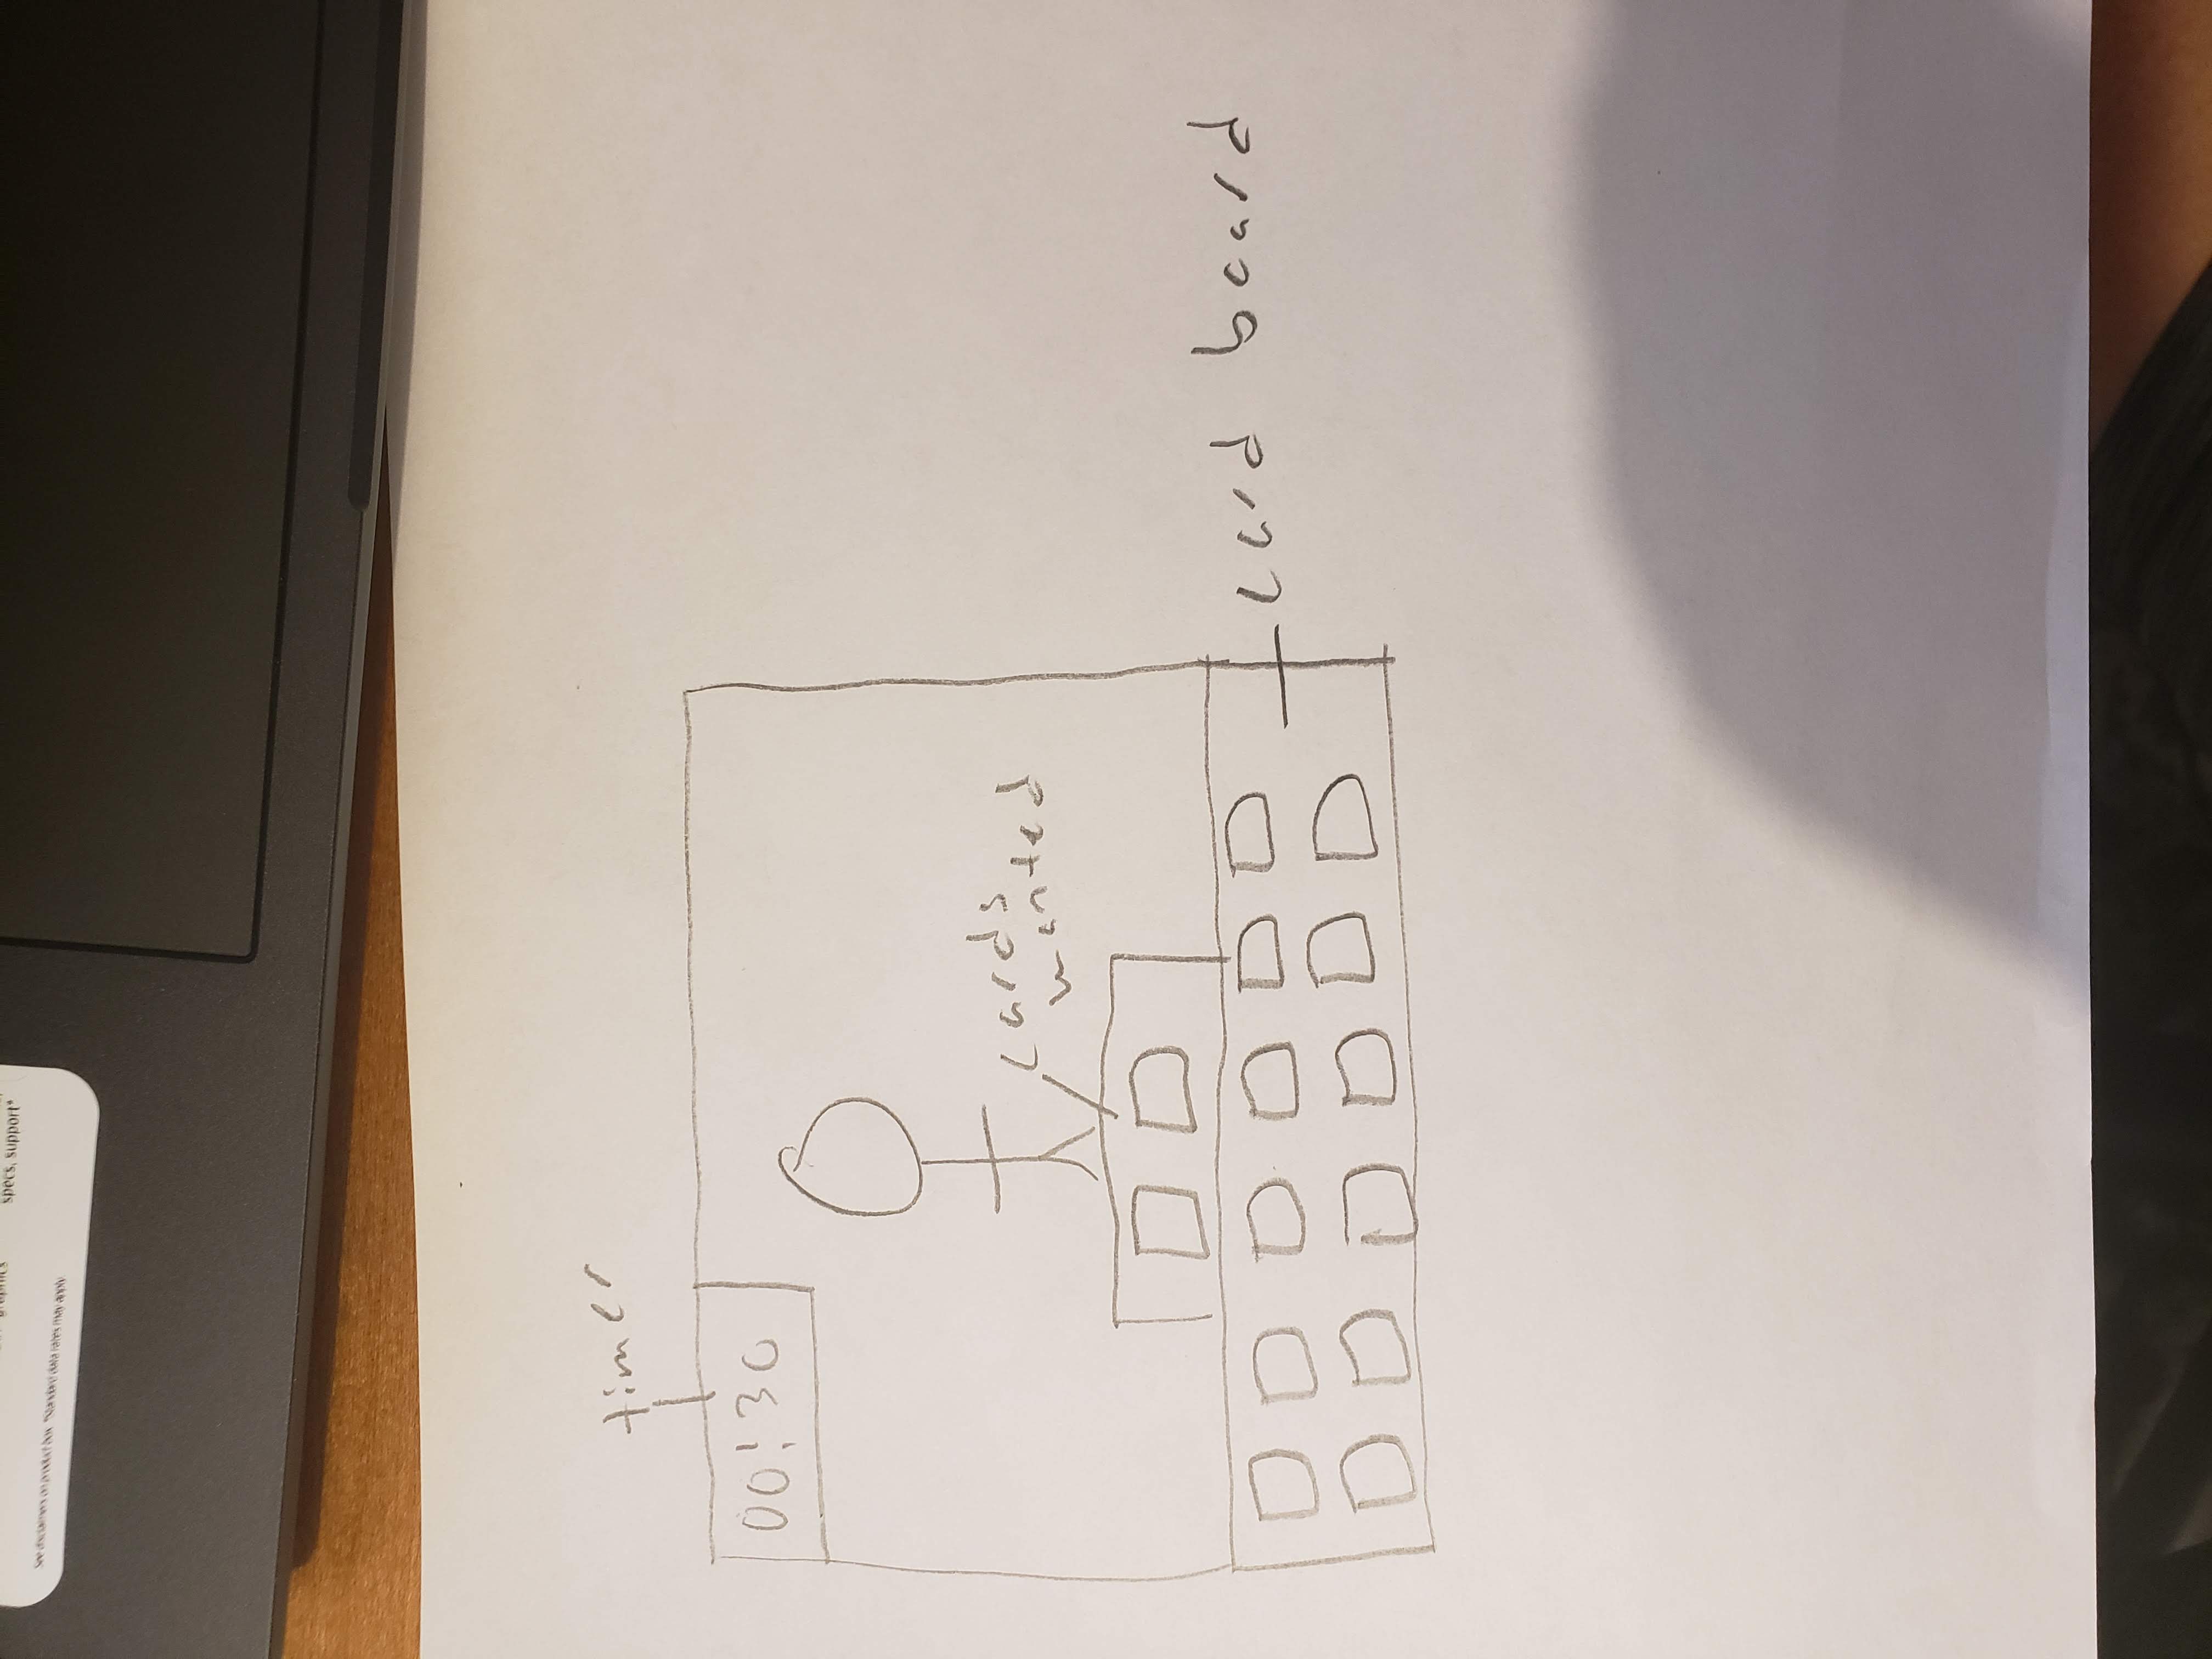 graphics
specs, support*
See disclaimers on product box. *Standard data rates may apply.
timer
00:30
cards
wanted
card board